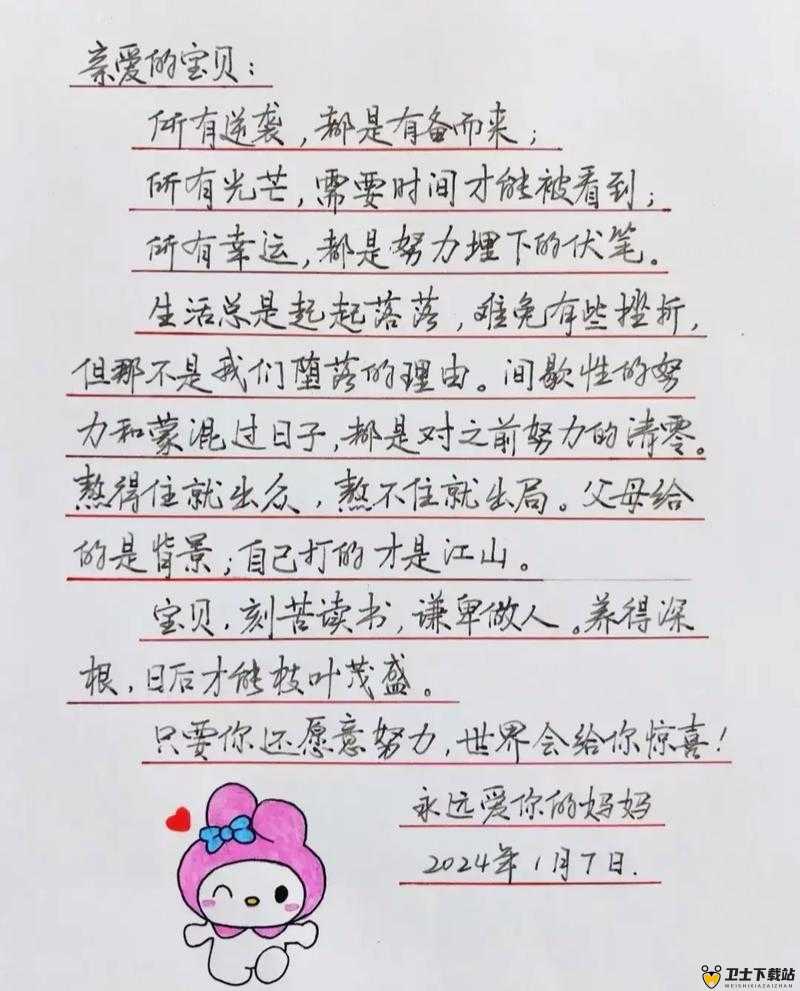 亲爱的宝贝：
所有逆袭，都是有备而来；
所有光芒，需要时间才能被看到；
所有幸运，都是努力埋下的伏笔。
生活总是起起落落，难免有些挫折，
但那不是我们堕落的理由。间歇性的努
力和蒙混过日子，都是对之前努力的清零。
熬得住就出众，熬不住就出局。父母给
的是背景；自己打的才是江山。
宝贝．刻苦读书，谦卑做人。养得深
根，日后才能枝叶茂盛。
只要你还愿意努力，世界会给你惊喜！
永远爱你的妈妈
2024年1月7日.
卫士下载站
WEISHIXIAZAIZHAN